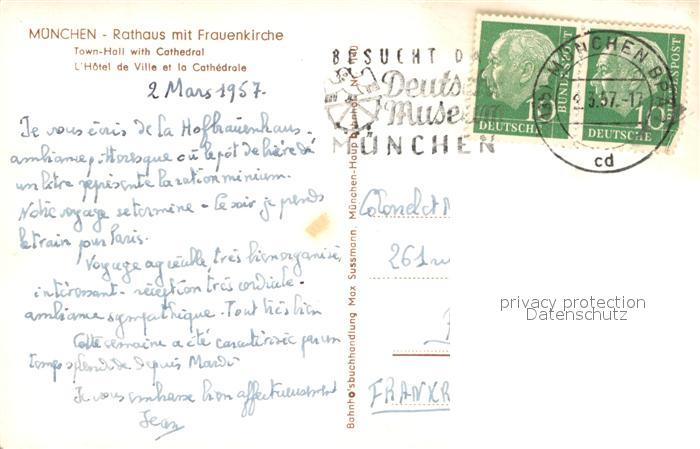 MÜNCHEN - Rathaus mit Frauenkirche
Town-Hall with Cathedral
L'Hôtel de Ville et la Cathédrale
2 Mars 1957.
Je vous écris de la Hofbrauenhaus -
ambiance pittoresque où le pôt de bière de
un litre représente la ration minium.
Notre voyage se termine - Ce soir je prends
le train pour Paris.
Voyage agréable, très bien organisé,
intéressant - réception très cordiale -
ambiance sympathique. Tout très bien
Cette semaine a été caractérisée par un
temps splendide depuis Mardi
Je vous embrasse bien affectueusement
Jean
Bahnhofsbuchhandlung Max Sussmann, München-Hauptbahnhof
BESUCHT DAS
Deutsche
Museum
MÜNCHEN
10
BUNDESPOST
DEUTSCHE
10
BUNDESPOST
DEUTSCHE
MÜNCHEN BP
3.57.-17
cd
Colonel et M
261 ru
FRANKR
privacy protection
Datenschutz